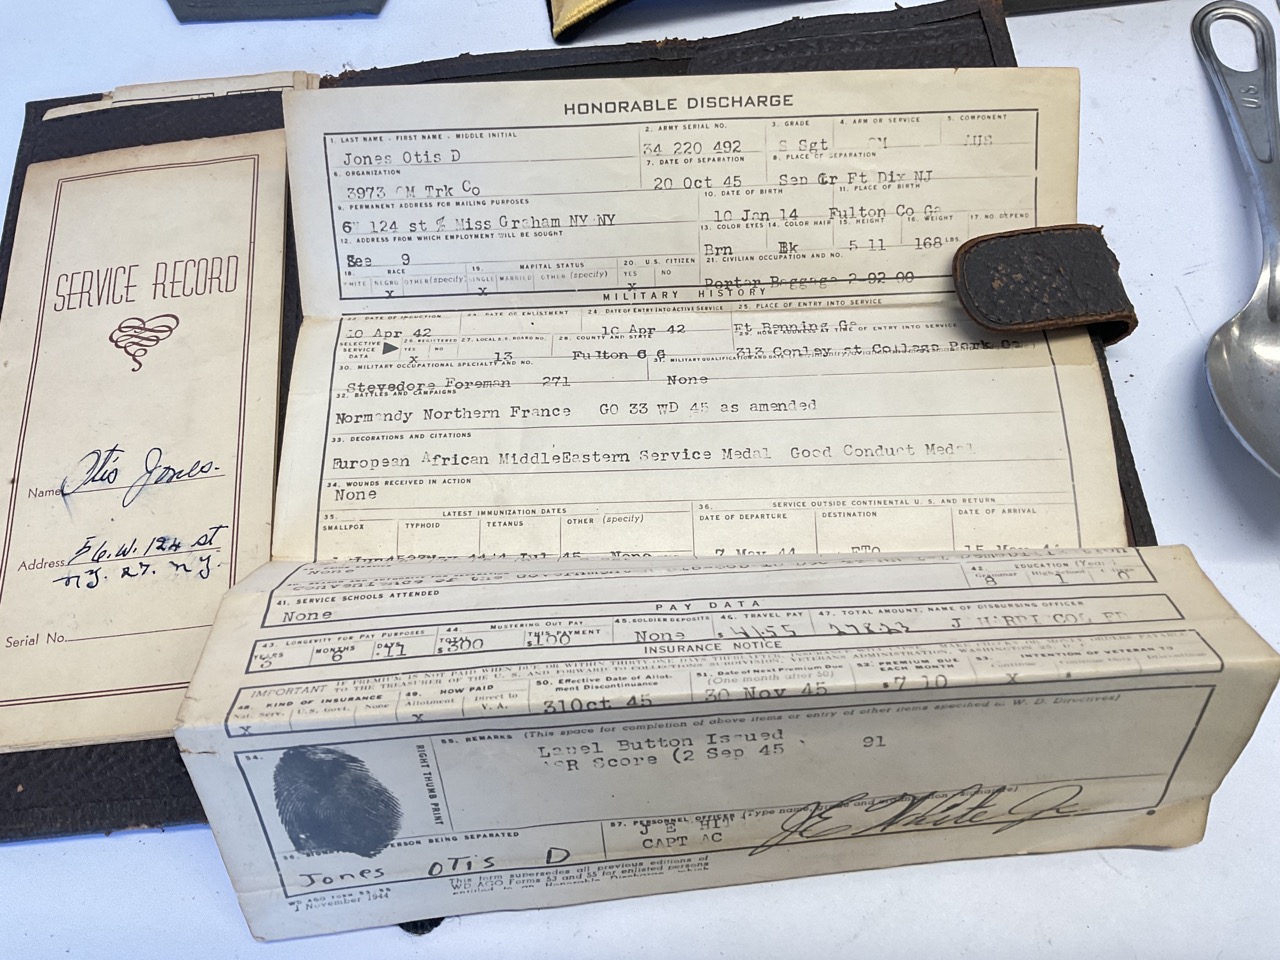 SERVICE RECORD
Name Otis Jones.
Address 56. W. 124 st
n.y. 27. n.y.
Serial No.
HONORABLE DISCHARGE
1. LAST NAME - FIRST NAME - MIDDLE INITIAL
2. ARMY SERIAL NO.
3. GRADE
4. ARM OR SERVICE
5. COMPONENT
Jones Otis D
34 220 492
S Sgt
AUS
6. ORGANIZATION
7. DATE OF SEPARATION
8. PLACE OF SEPARATION
3973 QM Trk Co
20 Oct 45
Sep Cr Ft Dix NJ
9. PERMANENT ADDRESS FOR MAILING PURPOSES
10. DATE OF BIRTH
11. PLACE OF BIRTH
124 st % Miss Graham NY NY
10 Jan 14
Fulton Co Ga
12. ADDRESS FROM WHICH EMPLOYMENT WILL BE SOUGHT
13. COLOR EYES
14. COLOR HAIR
15. HEIGHT
16. WEIGHT
17. NO. DEPEND
See 9
Brn
Bk
5 11
168 LBS
18. RACE
19. MARITAL STATUS
20. U.S. CITIZEN
21. CIVILIAN OCCUPATION AND NO.
WHITE NEGRO OTHER (specify)
SINGLE MARRIED OTHER (specify)
YES NO
x
x
x
Porter Baggage 2-92 00
MILITARY HISTORY
22. DATE OF INDUCTION
23. DATE OF ENLISTMENT
24. DATE OF ENTRY INTO ACTIVE SERVICE
25. PLACE OF ENTRY INTO SERVICE
10 Apr 42
10 Apr 42
Ft Benning Ga
SELECTIVE SERVICE DATA
26. REGISTERED
YES NO
27. LOCAL S.S. BOARD NO.
28. COUNTY AND STATE
29. HOME ADDRESS AT TIME OF ENTRY INTO SERVICE
x
13
Fulton
313 Conley st College Park Ga
30. MILITARY OCCUPATIONAL SPECIALTY AND NO.
Stevedore Foreman 271
None
32. BATTLES AND CAMPAIGNS
Normandy Northern France GO 33 WD 45 as amended
33. DECORATIONS AND CITATIONS
European African MiddleEastern Service Medal Good Conduct Medal
34. WOUNDS RECEIVED IN ACTION
None
35. LATEST IMMUNIZATION DATES
36. SERVICE OUTSIDE CONTINENTAL U. S. AND RETURN
SMALLPOX
TYPHOID
TETANUS
OTHER (specify)
DATE OF DEPARTURE
DESTINATION
DATE OF ARRIVAL
Jul 45
None
7 May 44
ETO
15 May 44
42. EDUCATION (Years)
Grammar High School College
8 1 0
41. SERVICE SCHOOLS ATTENDED
None
PAY DATA
43. LONGEVITY FOR PAY PURPOSES
44. MUSTERING OUT PAY
45. SOLDIER DEPOSITS
46. TRAVEL PAY
47. TOTAL AMOUNT, NAME OF DISBURSING OFFICER
YEARS
MONTHS
DAYS
TOTAL
THIS PAYMENT
3
6
11
$ 300
$ 100
None
INSURANCE NOTICE
IMPORTANT
48. KIND OF INSURANCE
Nat. Serv. U.S. Govt. None
49. HOW PAID
Allotment
Direct to V. A.
50. Effective Date of Allotment Discontinuance
51. Date of Next Premium Due (One month after 50)
52. PREMIUM DUE EACH MONTH
53. INTENTION OF VETERAN TO
x
x
31Oct 45
30 Nov 45
$ 7 10
x
54.
RIGHT THUMB PRINT
55. REMARKS (This space for completion of above items or entry of other items specified in W. D. Directives)
Lapel Button Issued
ASR Score (2 Sep 45
91
PERSON BEING SEPARATED
57. PERSONNEL OFFICER
CAPT AC
Jones OTIS D
WD AGO FORM 53-55
1 November 1944
This form supersedes all previous editions of
WD AGO Forms 53 and 55 for enlisted persons
entitled to an Honorable Discharge
US